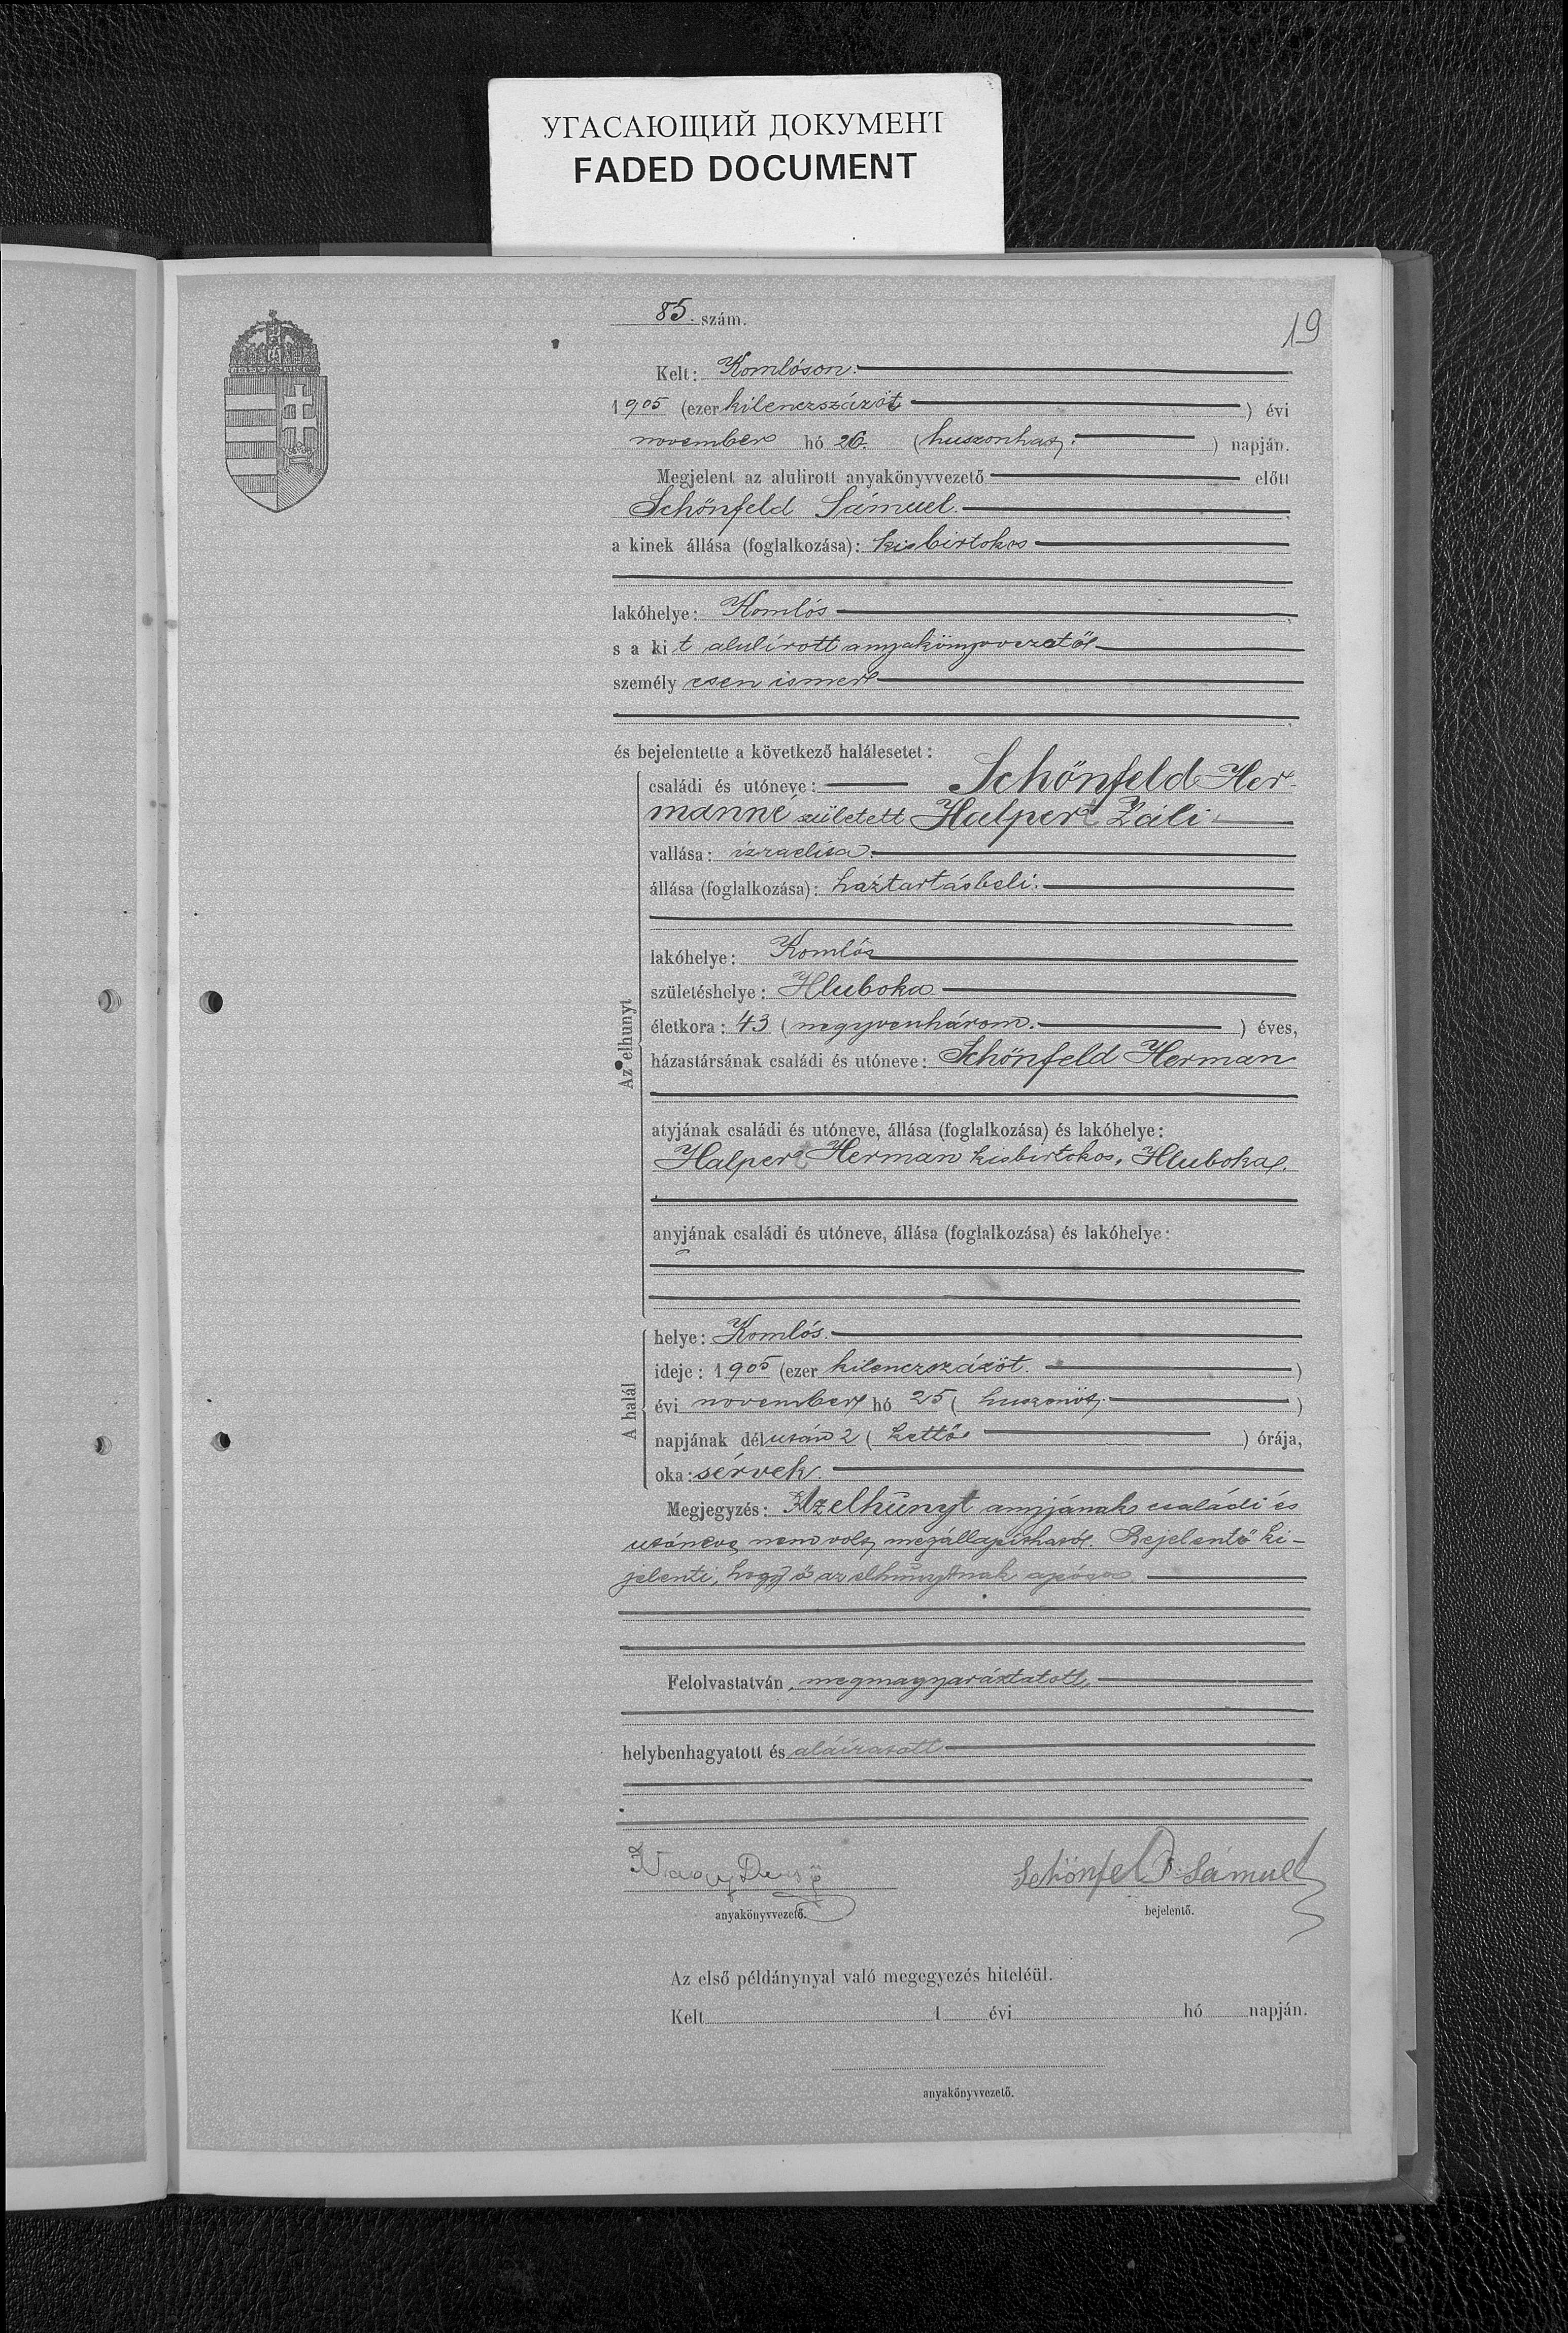 УГАСАЮЩИЙ ДОКУМЕНТ
FADED DOCUMENT
85. szám.
19
Kelt: Komlóson.
1905 (ezer kilenczszázöt) évi
november hó 26. (huszonhat.) napján.
Megjelent az alulirott anyakönyvvezető előtt
Schönfeld Sámuel.
a kinek állása (foglalkozása): kisbirtokos
lakóhelye: Komlós
s a ki t alulírott anyakönyvvezető
személy esen ismer
és bejelentette a következő halálesetet:
családi és utóneve: Schönfeld Her-
manné született Halpert Záli
vallása: izraelita.
állása (foglalkozása): háztartásbeli.
lakóhelye: Komlós
születéshelye: Hluboka
életkora: 43 (negyvenhárom.) éves,
házastársának családi és utóneve: Schönfeld Herman
Az elhunyt
atyjának családi és utóneve, állása (foglalkozása) és lakóhelye:
Halpert Herman kisbirtokos, Hluboka.
anyjának családi és utóneve, állása (foglalkozása) és lakóhelye:
helye: Komlós.
ideje: 1905 (ezer kilenczszázöt.)
évi november hó 25 (huszonöt.)
A halál
napjának délután 2 (kettő) órája,
oka: sérvek.
Megjegyzés: Az elhunyt anyjának családi és
utóneve nem volt megállapítható. Bejelentő ki-
jelenti, hogy ő az elhunytnak apósa.
Felolvastatván, megmagyaráztatott,
helybenhagyatott és aláíratott
Nagy Dezső Schönfeld Sámuel
anyakönyvvezető. bejelentő.
Az első példánynyal való megegyezés hiteléül.
Kelt 1 évi hó napján.
anyakönyvvezető.